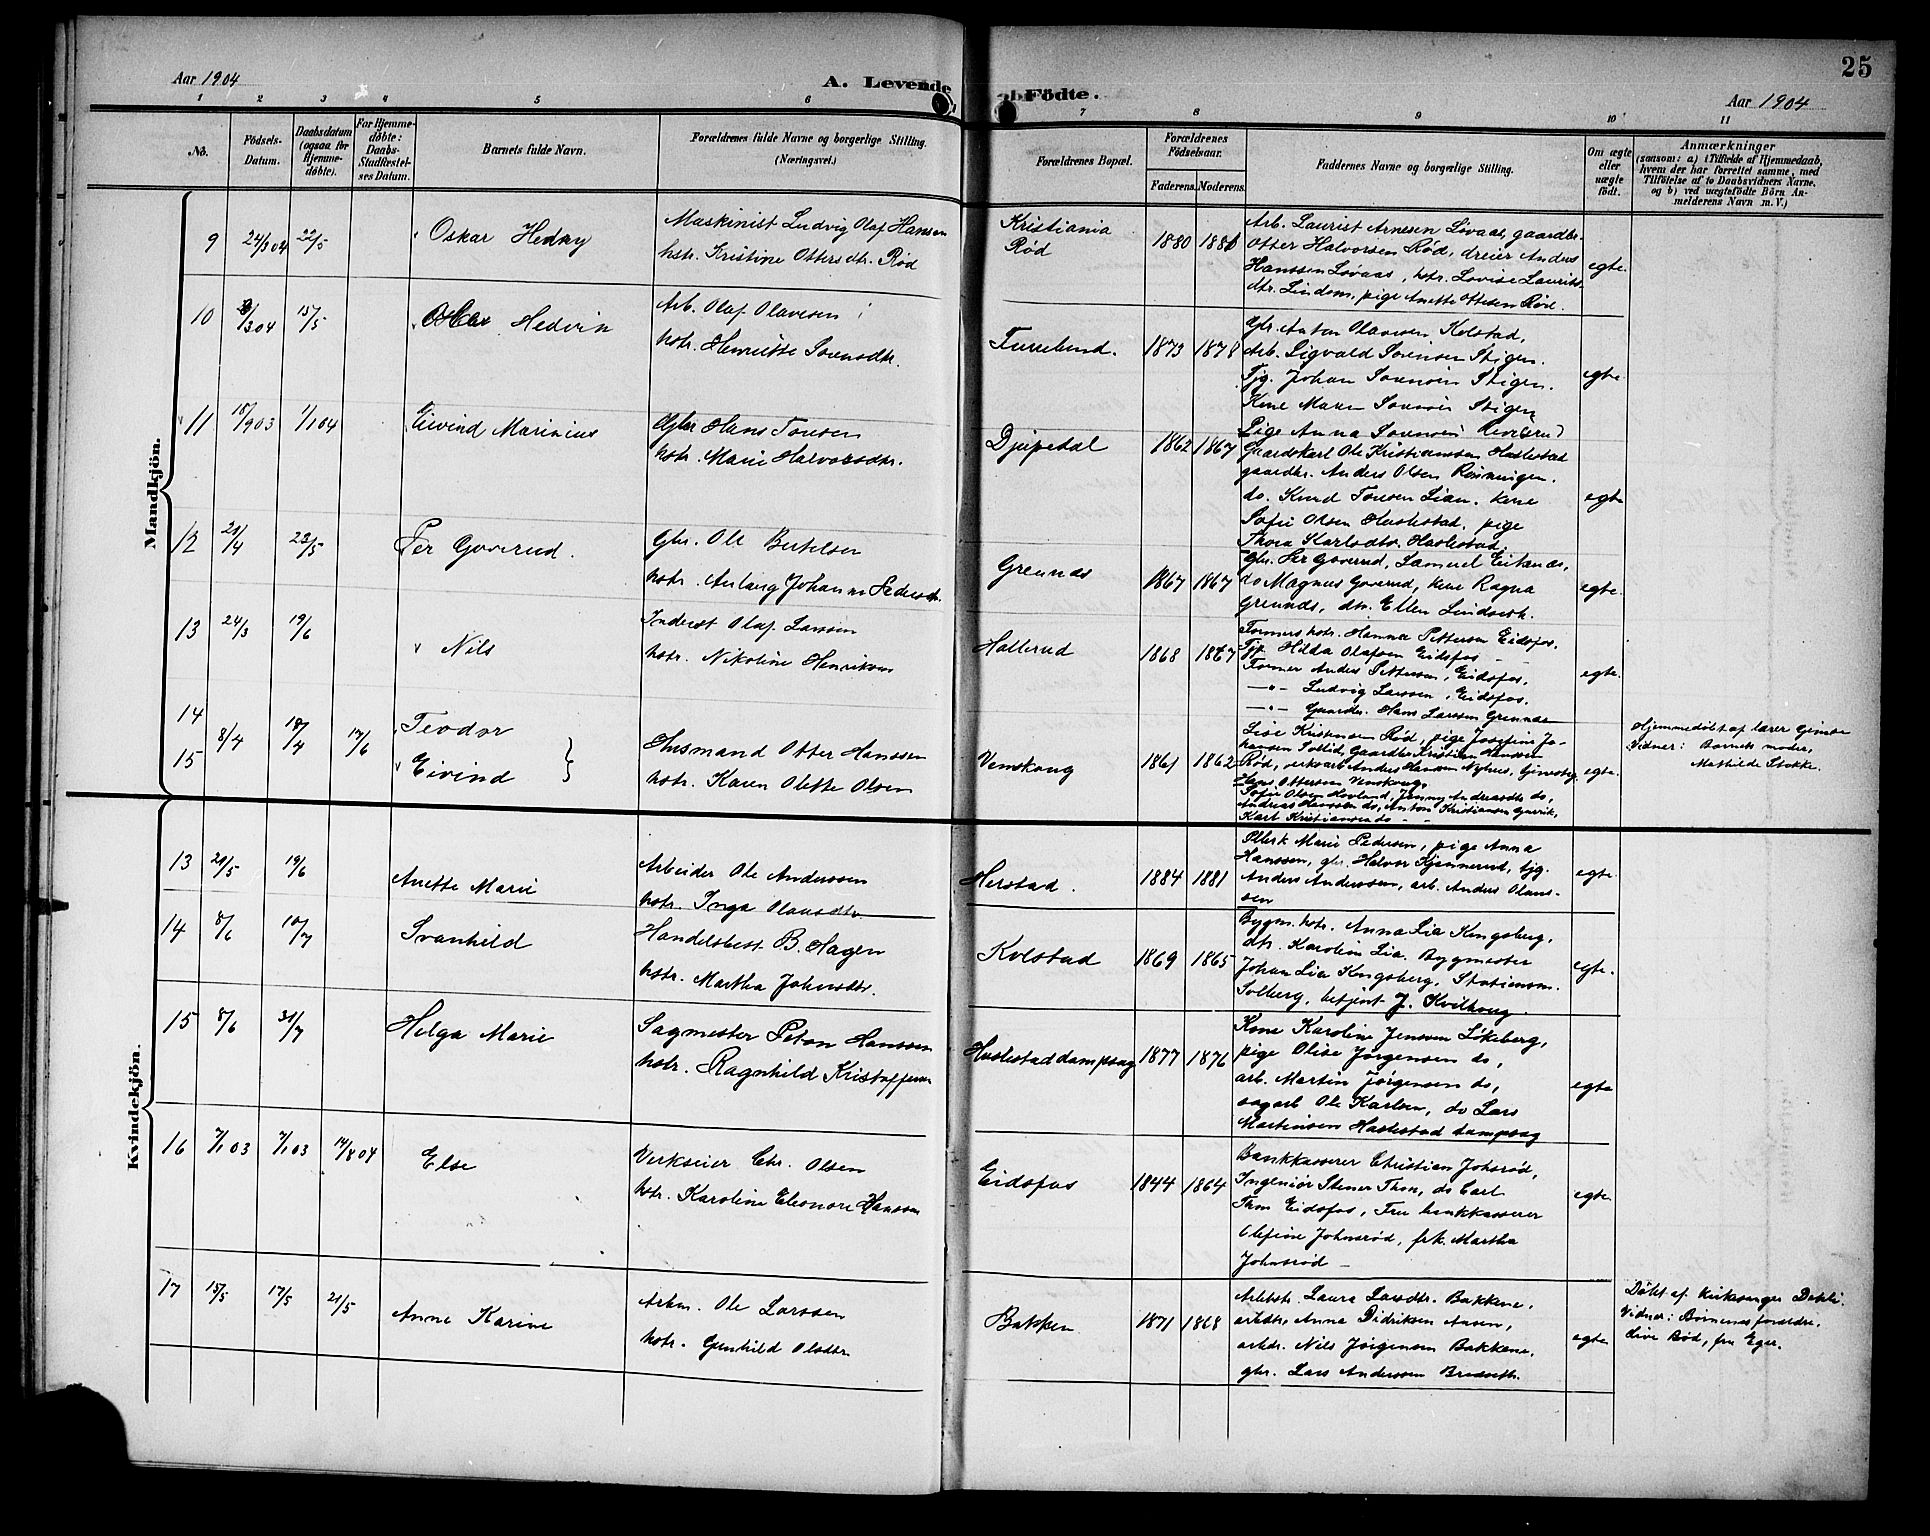 Aar 1904
A. Levende Födte.
25
Aar 1904
1 2 3 4 5 6 7 8 9 10 11
No.
Födsels-Datum.
Daabsdatum (ogsaa for Hjemme-døbte).
For Hjemme-døbte: Daabs-Stadfæstel-ses Datum.
Barnets fulde Navn.
Forældrenes fulde Navne og borgerlige Stilling.
(Næringsvei.)
Forældrenes Bopæl.
Forældrenes Födselsaar.
Faderens. Moderens.
Faddernes Navne og borgerlige Stilling.
Om ægte eller uægte født.
Anmærkninger
(saasom: a) i Tilfælde af Hjemmedaab,
hvem der har forrettet samme, med
Tilføielse af to Daabsvidners Navne,
og b) ved uægtefødte Börn An-
melderens Navn m. V.)
Mandkjön.
9 24/3 04 22/5 Oskar Hedny
Maskinist Ludvig Olaf Hansen
hstr. Kristine Ottersdtr. Rød
Kristiania
Rød
1880
Arb. Laurist Arnesen Lövaas, gaardbr.
Otter Halvorsen Rød, dreier Anders
Hanssen Lovaas, hstr. Lovise Laurits
dtr. Lindem, pige Anette Ottesen Rød.
egte.
10 3/3 04 15/5 Hedvin
Arb. Olaf Olavesen
hstr. Henriette Sorensdtr.
1873 1878
Gbr. Anton Olavesen Kolstad,
Arb. Sigvald Sorensen Stigen.
Tjg. Johan Sorensen Stigen.
Kone Maren Sorensen Stigen
Pige Anna Sorensen
egte.
11 18/9 03 1/1 04 Eivind Marinius
Gbr Hans Tonsen
hstr. Marie Halvorsdtr.
Djupedal
1862 1867
Gaardskarl Ole Kristianssen Haslestad
gaardbr. Anders Olsen Rönningen.
do. Knud Tonsen Lian. kone
Sofie Olsen Haslestad. pige
Thora Karlsdtr. Haslestad
egte
12 21/4 22/5 Per Goverud.
Gbr. Ole Bertelsen
hstr. Anlaug Johanne Pedersdtr.
Grennes
1867 1867
Gbr. Per Goverud, Samuel Eikenæs,
do Magnus Goverud, kone Ragna
Grennes, dtr. Ellen Lindseth.
egte.
13 24/3 19/6 Nils
Inderst Olaf Larssen
hstr. Nikoline Henriksen
Hallerud
1868 1867
Formers hstr. Hanna Pettersen Eidsfos.
Tjp. Hilda Olafsen Eidsfos -
Former Anders Pettersen, Eidsfos.
—"— Ludvig Larssen, Eidsfos.
—"— Gaardbr. Hans Larssen Grennes
egte.
14 Teodor
8/4 18/4 17/6
15 Eivind
Husmand Otter Hanssen
hstr. Karen Olette Olsen
Venskoug
1861 1862
Lise Kristensen Rød, pige Josefine Jo-
hansen Soltid, Gaardbr. Kristian Hansen
Rød, verksarb Anders Hansen Nyhus,
Hans Ottersen Venskoug,
Sofie Olsen Hovland, Jenny Andersdtr do,
Andreas Hanssen do, Anton Kristiansen
Karl Kristiansen do - -
egte.
Hjemmedøbt af lærer
Vidner: Barnets moder,
Mathilde Stokke.
Kvindekjön.
13 21/5 19/6 Anette Marie
Arbeider Ole Anderssen
hstr. Inga Olausdtr
Herstad.
1884 1881
Marie Pedersen, pige Anna
Hanssen, gbr. Halvor Kjennerud, tjg.
Anders Anderssen, arb. Anders Olaus-
sen
egte.
14 8/6 10/7 Svanhild
Handelsbest. B. Hagen
hstr. Martha Johnsdtr.
Kolstad
1869 1865
Bygm. hstr. Anna Lia Kongsberg,
dtr. Karoline Lia. Bygmester
Johan Lia Kongsberg, Stationsm.
Solberg, betjent J. Kvilhaug.
egte.
15 8/6 31/7 Helga Marie
Sagmester Peton Hanssen
hstr. Ragnhild Kristoffersen
Haslestad dampsag
1877 1876
Kone Karoline Jenssen Lökeberg,
pige Olise Jørgensen do,
arb. Martin Jørgensen do,
sagarb Ole Karlsen, do Lars
Martinsen Haslestad dampsag
egte
16 7/1 03 7/1 03 14/8 04 Else
Verkseier Chr. Olsen
hstr. Karoline Eleonore Hanssen
Eidsfos
1844 1864
Bankkasserer Christian Johsrød,
Ingeniør Stener Thon, do Carl
Thon Eidsfos, Fru bankkasserer
Olefine Johnsrød, frk. Martha
Johnsrød —
egte.
17 15/5 17/5 21/5 Anna Karine
Arbm. Ole Larssen
hstr. Gunhild Olsdtr
Bakken
1871 1868
Arbstr. Laura Larsdtr. Bakkene,
arbdtr. Anna Didriksen Aasen,
arbdr. Nils Jörgensen Bakkene,
gbr. Lars Anderssen
egte
Döbt af kirkesanger Dahli.
Vidner: Barnenes forældre.
Live Rød, fra Eger.